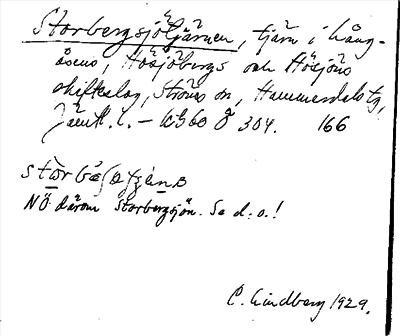 Storbergsjötjärnen, tjärn i Lång-
åsens, Högsjöbergs och Hösjöns
skifteslag, Ströms sn, Hammerdals tg,
Jämtl. l. – KS 60 Ö 304. 166
NÖ därom Storbergsjön. Se d. o.!
C. Lindberg 1929.